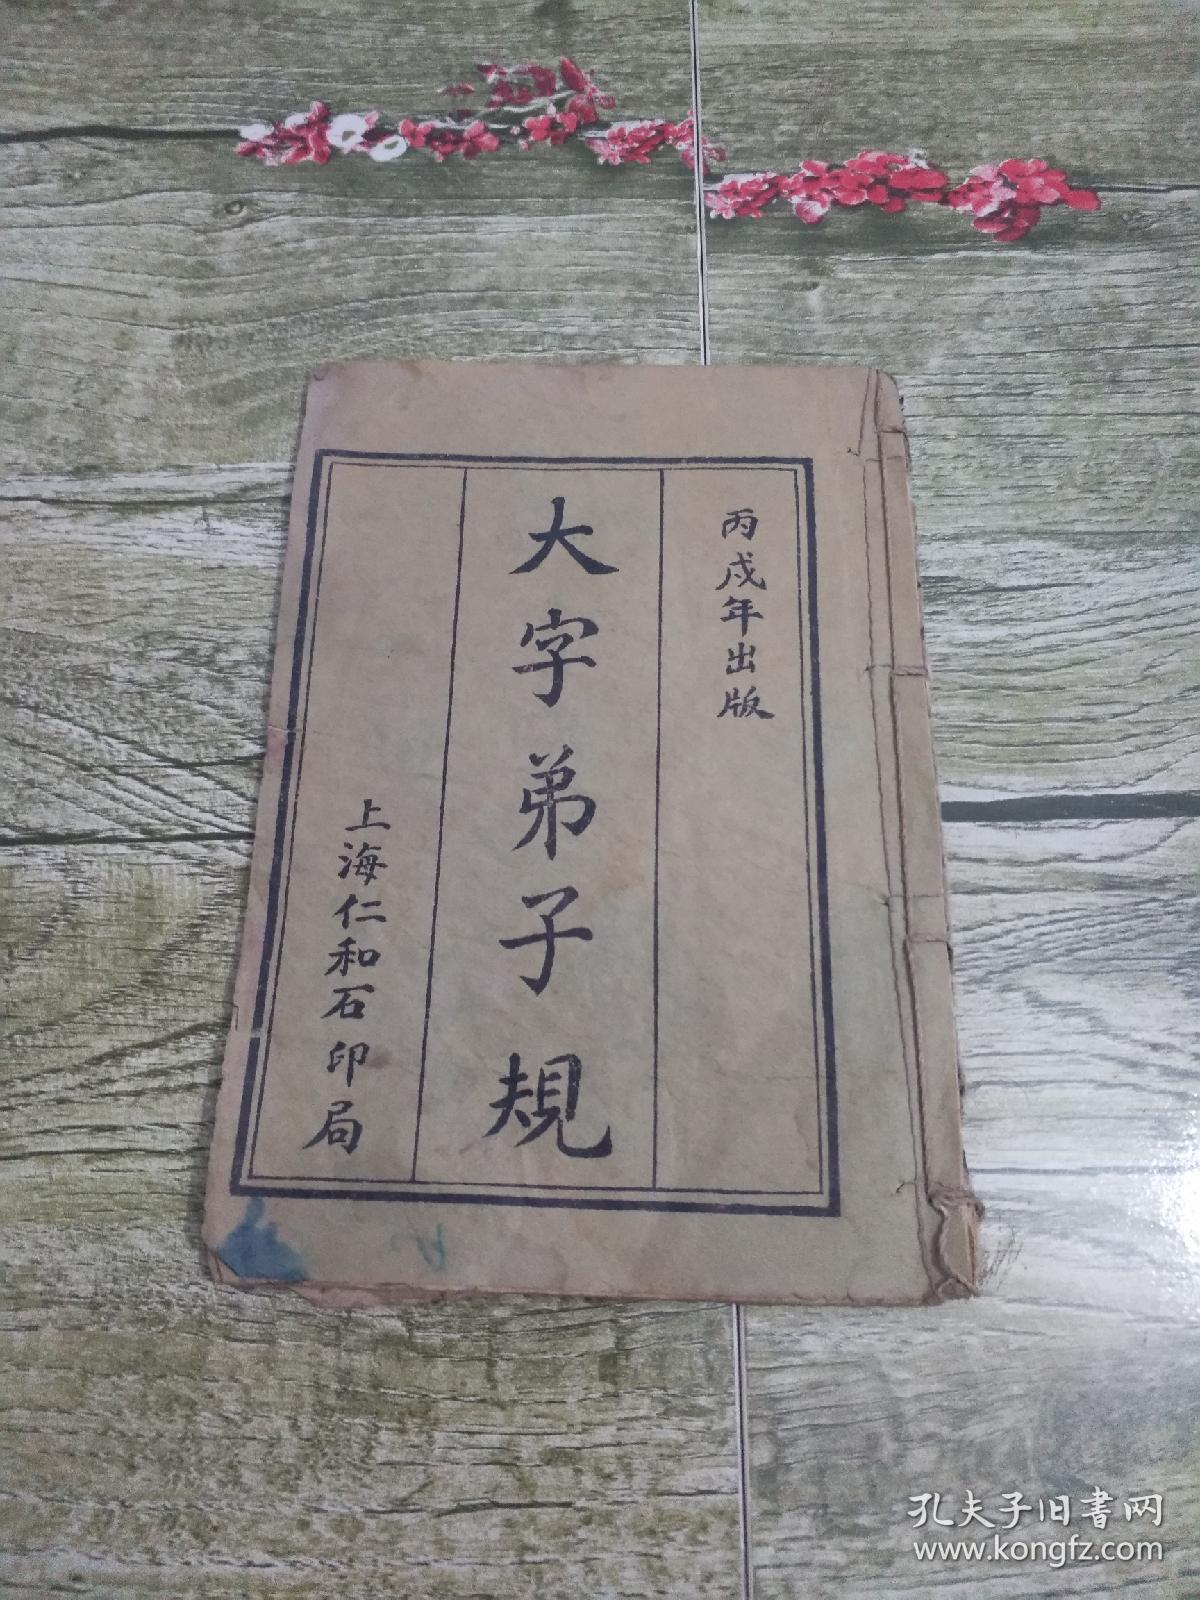 丙戌年出版
大字弟子規
上海仁和石印局
孔夫子旧書网
www.kongfz.com